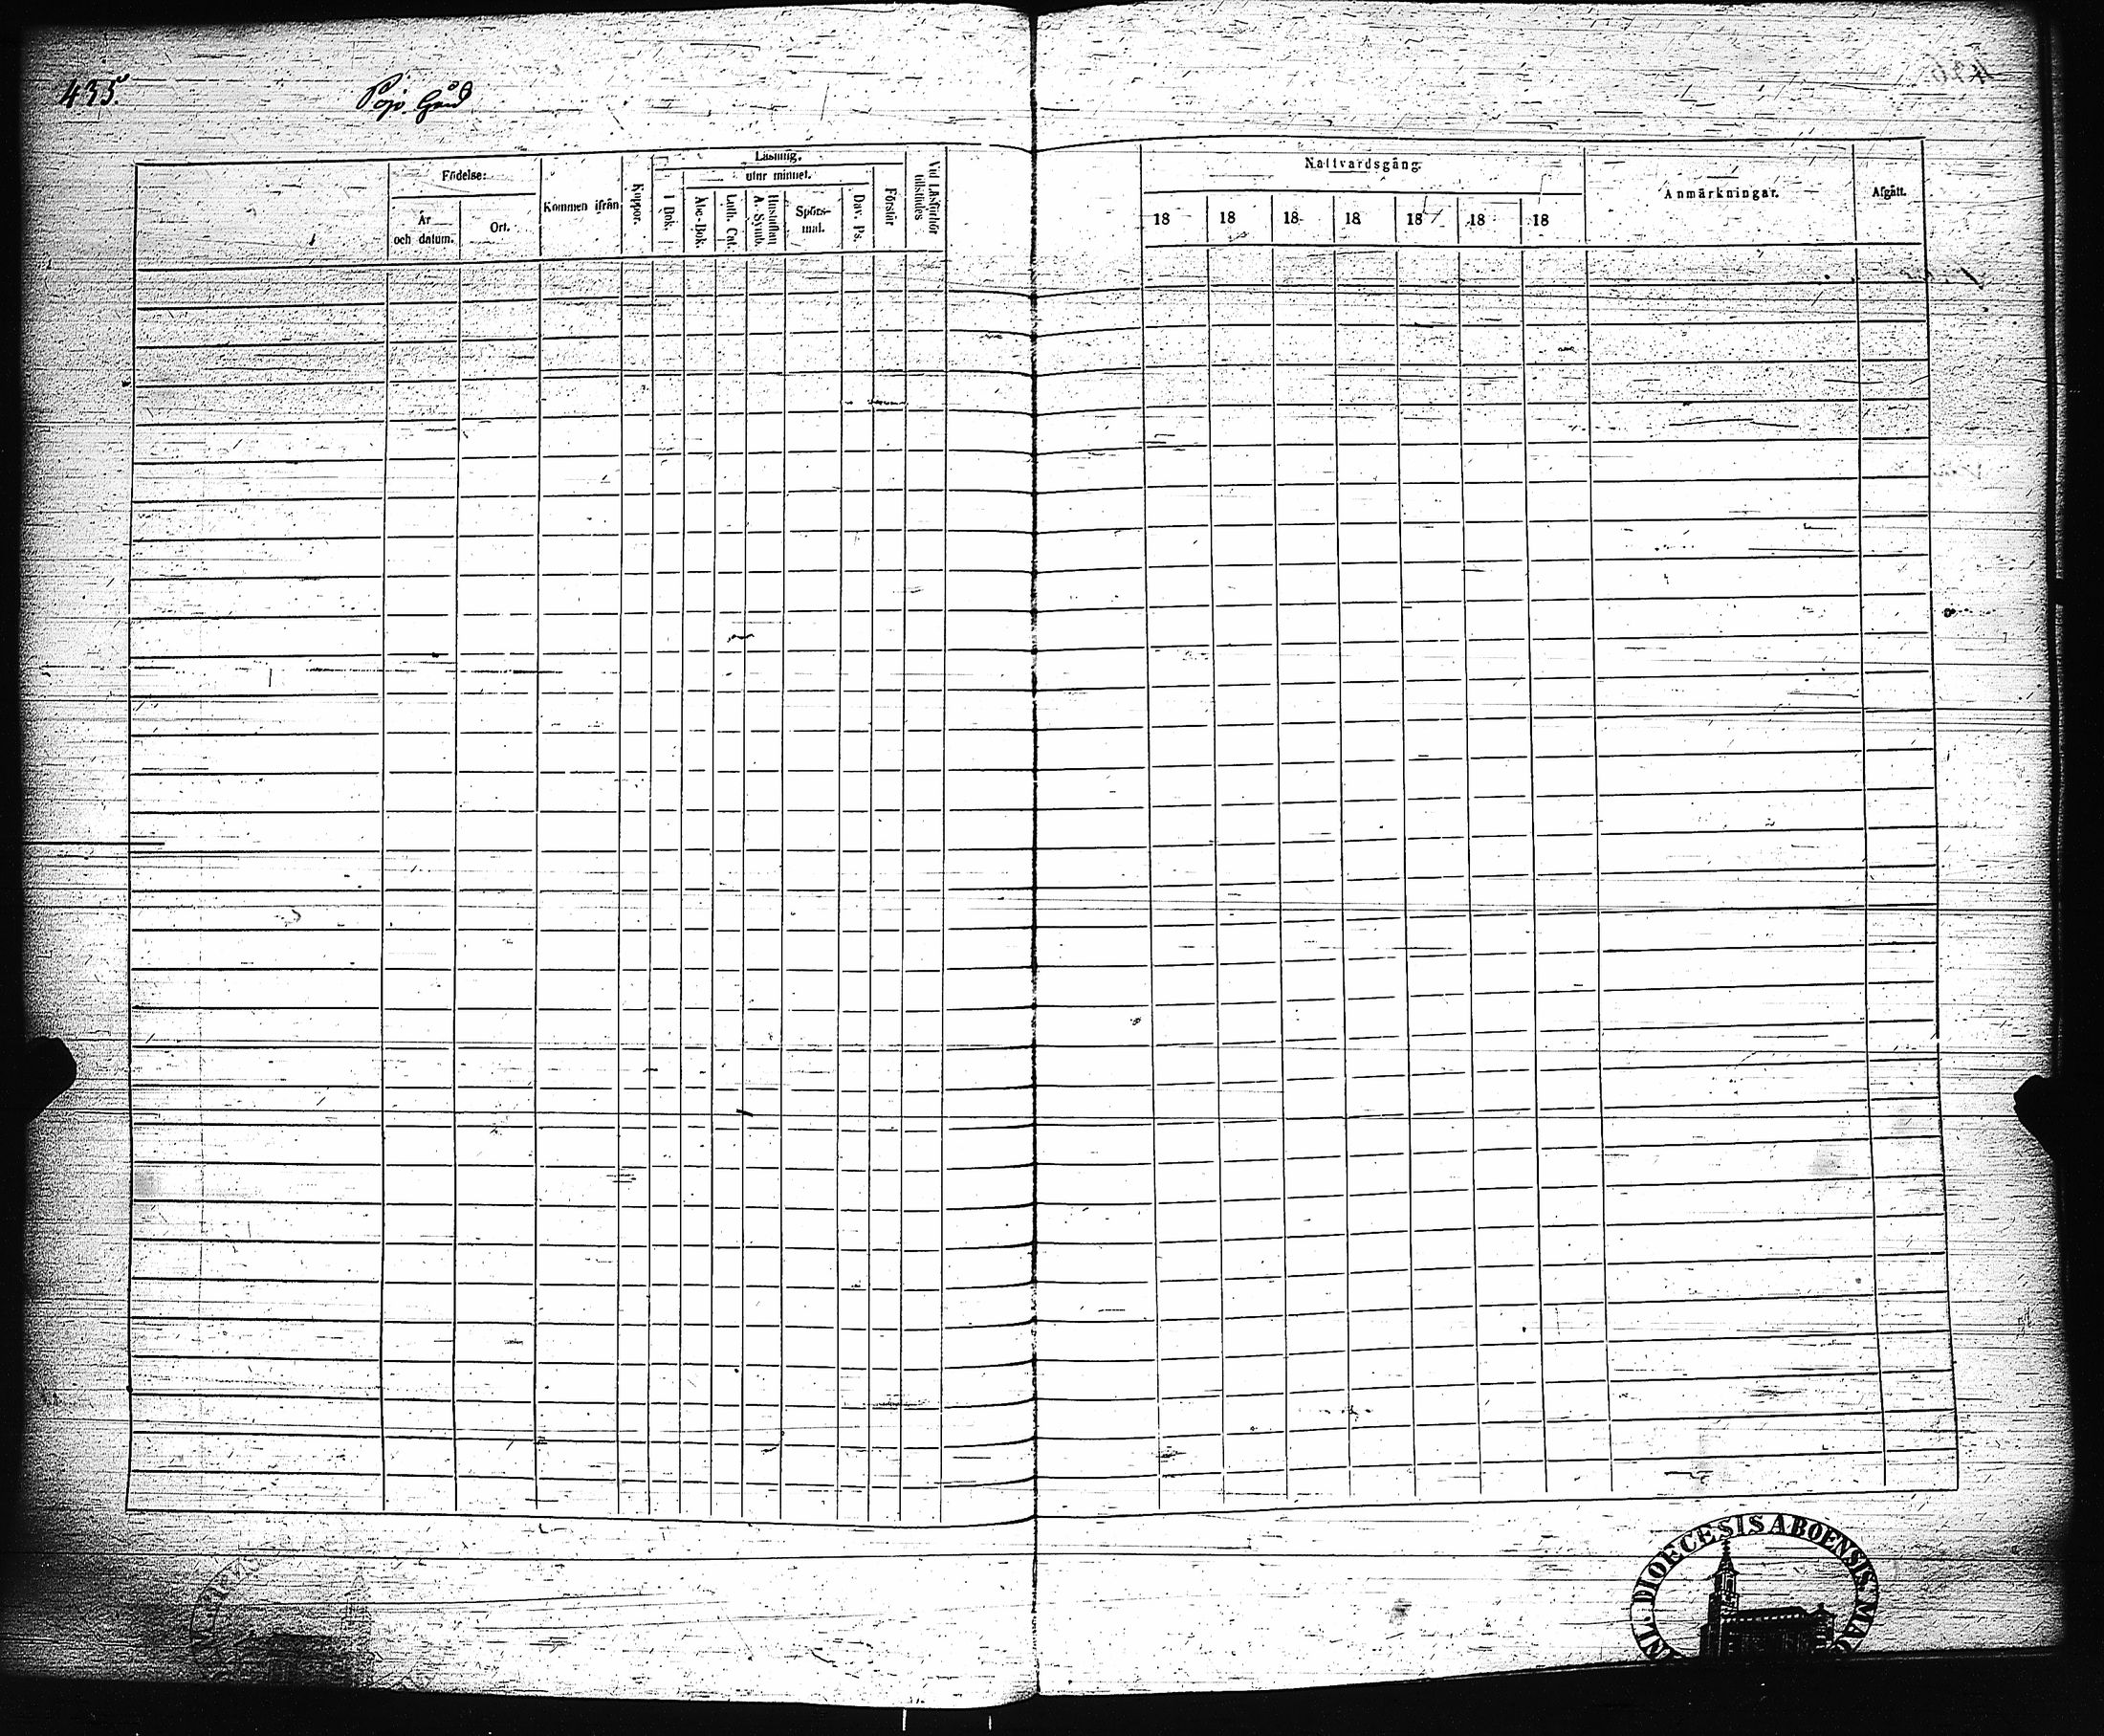 435.
Pojo Gård
Födelse:
År
och datum.
Ort.
Kommen ifrån
Koppor.
Läsning.
utur minnet.
I Bok.
Abc-Bok.
Luth. Cat.
Hustaflan
A. Symb.
Spörs-
mal.
Dav. Ps.
Förstår
Vid Läsförhör
tillstädes
Nattvardsgång.
18 18 18 18 18 18 18
Anmärkningar.
Afgått.
DIOECESIS ABOENSIS